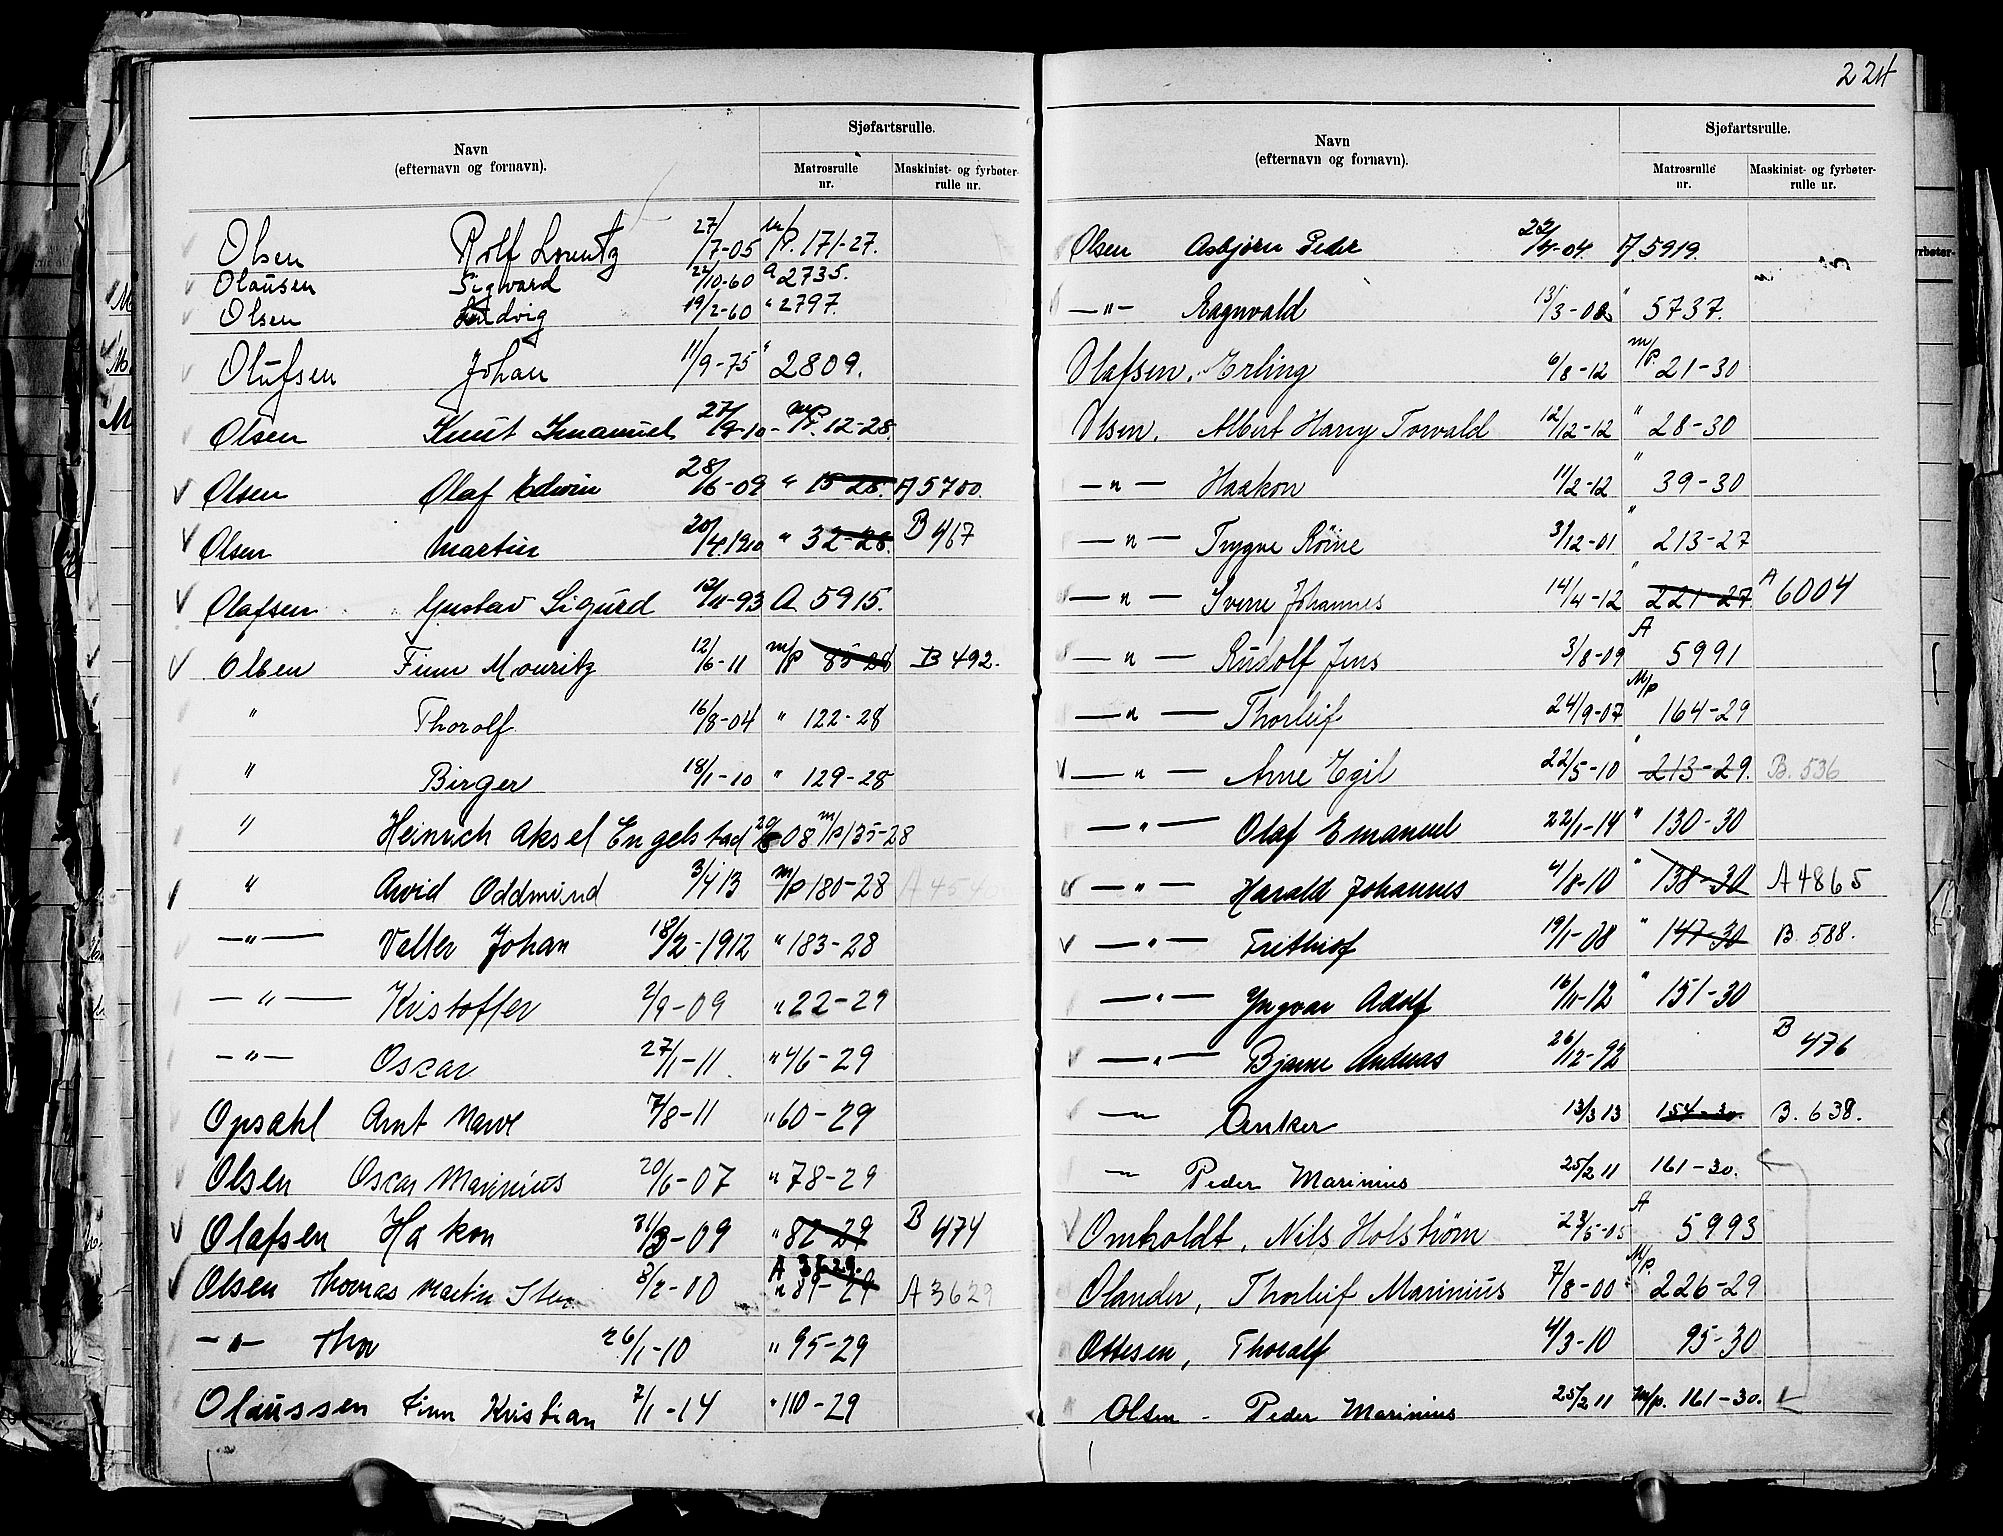 224
Navn
(efternavn og fornavn).
Sjøfartsrulle.
Matrosrulle nr.
Maskinist- og fyrbøter-rulle nr.
Olsen Rolf Lorentz 27/7-05 m/P. 171-27.
Olausen Sigvard 22/10-60 a 2735.
Olsen Ludvig 19/2-60 " 2797.
Olufsen Johan 11/9-75 " 2809.
Olsen Knut Imanuel 27/9-10- m/P. 12-28.
Olsen Olaf Edwin 28/6-09 " 15-28. A 5700.
Olsen Martin 20/4.1910 " 32-28. B 467
Olafsen Gustav Sigurd 12/11-93 A 5915.
Olsen Finn Mouritz 12/6-11 m/P 85-28 B 492.
" Thorolf 16/8-04 " 122-28
" Birger 18/1-10 " 129-28
" Heinrich Aksel Engelstad 08 m/P 135-28
" Arvid Oddmund 3/4 13 m/P 180-28 A 454
-"- Valter Johan 18/2-1912 " 183-28
-"- Kristoffer 2/9-09 " 22-29
-"- Oscar 27/1-11. " 46-29
Opsahl Arnt Marve 7/8-11 " 60-29
Olsen Oscar Marinius 20/6-07 " 78-29
Olafsen Hakon 31/3-09 " 82-29 B 474
Olsen Thomas Martin Sten 8/2-00 A 3629. " 89-29 A 3629
-"- Thor 26/1-10 " 95-29
Olaussen Finn Kristian 7/1-14 " 110-29
Navn
(efternavn og fornavn).
Sjøfartsrulle.
Matrosrulle nr.
Maskinist- og fyrbøter-rulle nr.
Olsen Asbjørn Peder 22/4-04. A. 5919.
-"- Ragnvald 13/3-00 " 5737.
Olafsen, Erling 6/8-12 m/P. 21-30
Olsen, Albert Harry Torvald 12/12-12 " 28-30
-"- Haakon 11/2-12 " 39-30
-"- Trygve Röine 31/12-01 " 213-27
-"- Sverre Johannes 14/4-12 " 221-27 A 6004
-"- Rudolf Jens 3/8-09 A 5991
-"- Thorleif 24/9-07 M/P 164-29
-"- Arne Egil 22/5-10 " 213-29. B. 536
-"- Olaf Emanuel 22/1-14 " 130-30
-"- Harald Johannes 4/8-10 " 138-30 A 4865
-"- Frithiof 19/1-08 " 147-30 B. 588.
-"- Yngvar Adolf 16/11-12 " 151-30
-"- Bjarne Andreas 26/12-92 B 476
-"- Anker 13/3 13 154-30. B. 638.
-"- Peder Marinius 25/2 11 161-30.
Omholdt, Nils Holström 23/5-05 A 5993
Olander, Thorleif Marinius 7/8-00 M/P. 226-29
Ottesen, Thoralf 4/3-10 95-30
Olsen - Peder Marinius 25/2 11 M/P. 161-30.